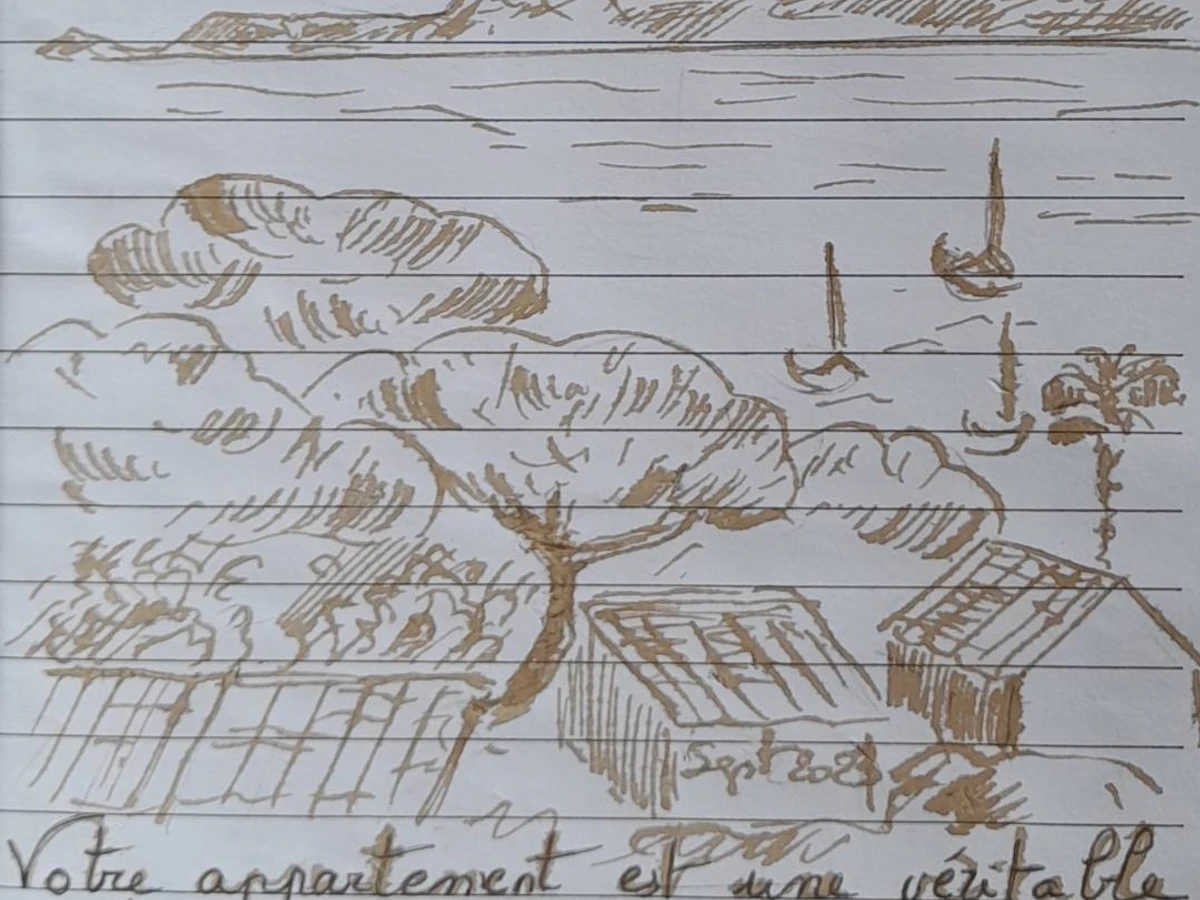 Sept 2023
Votre appartement est une véritable